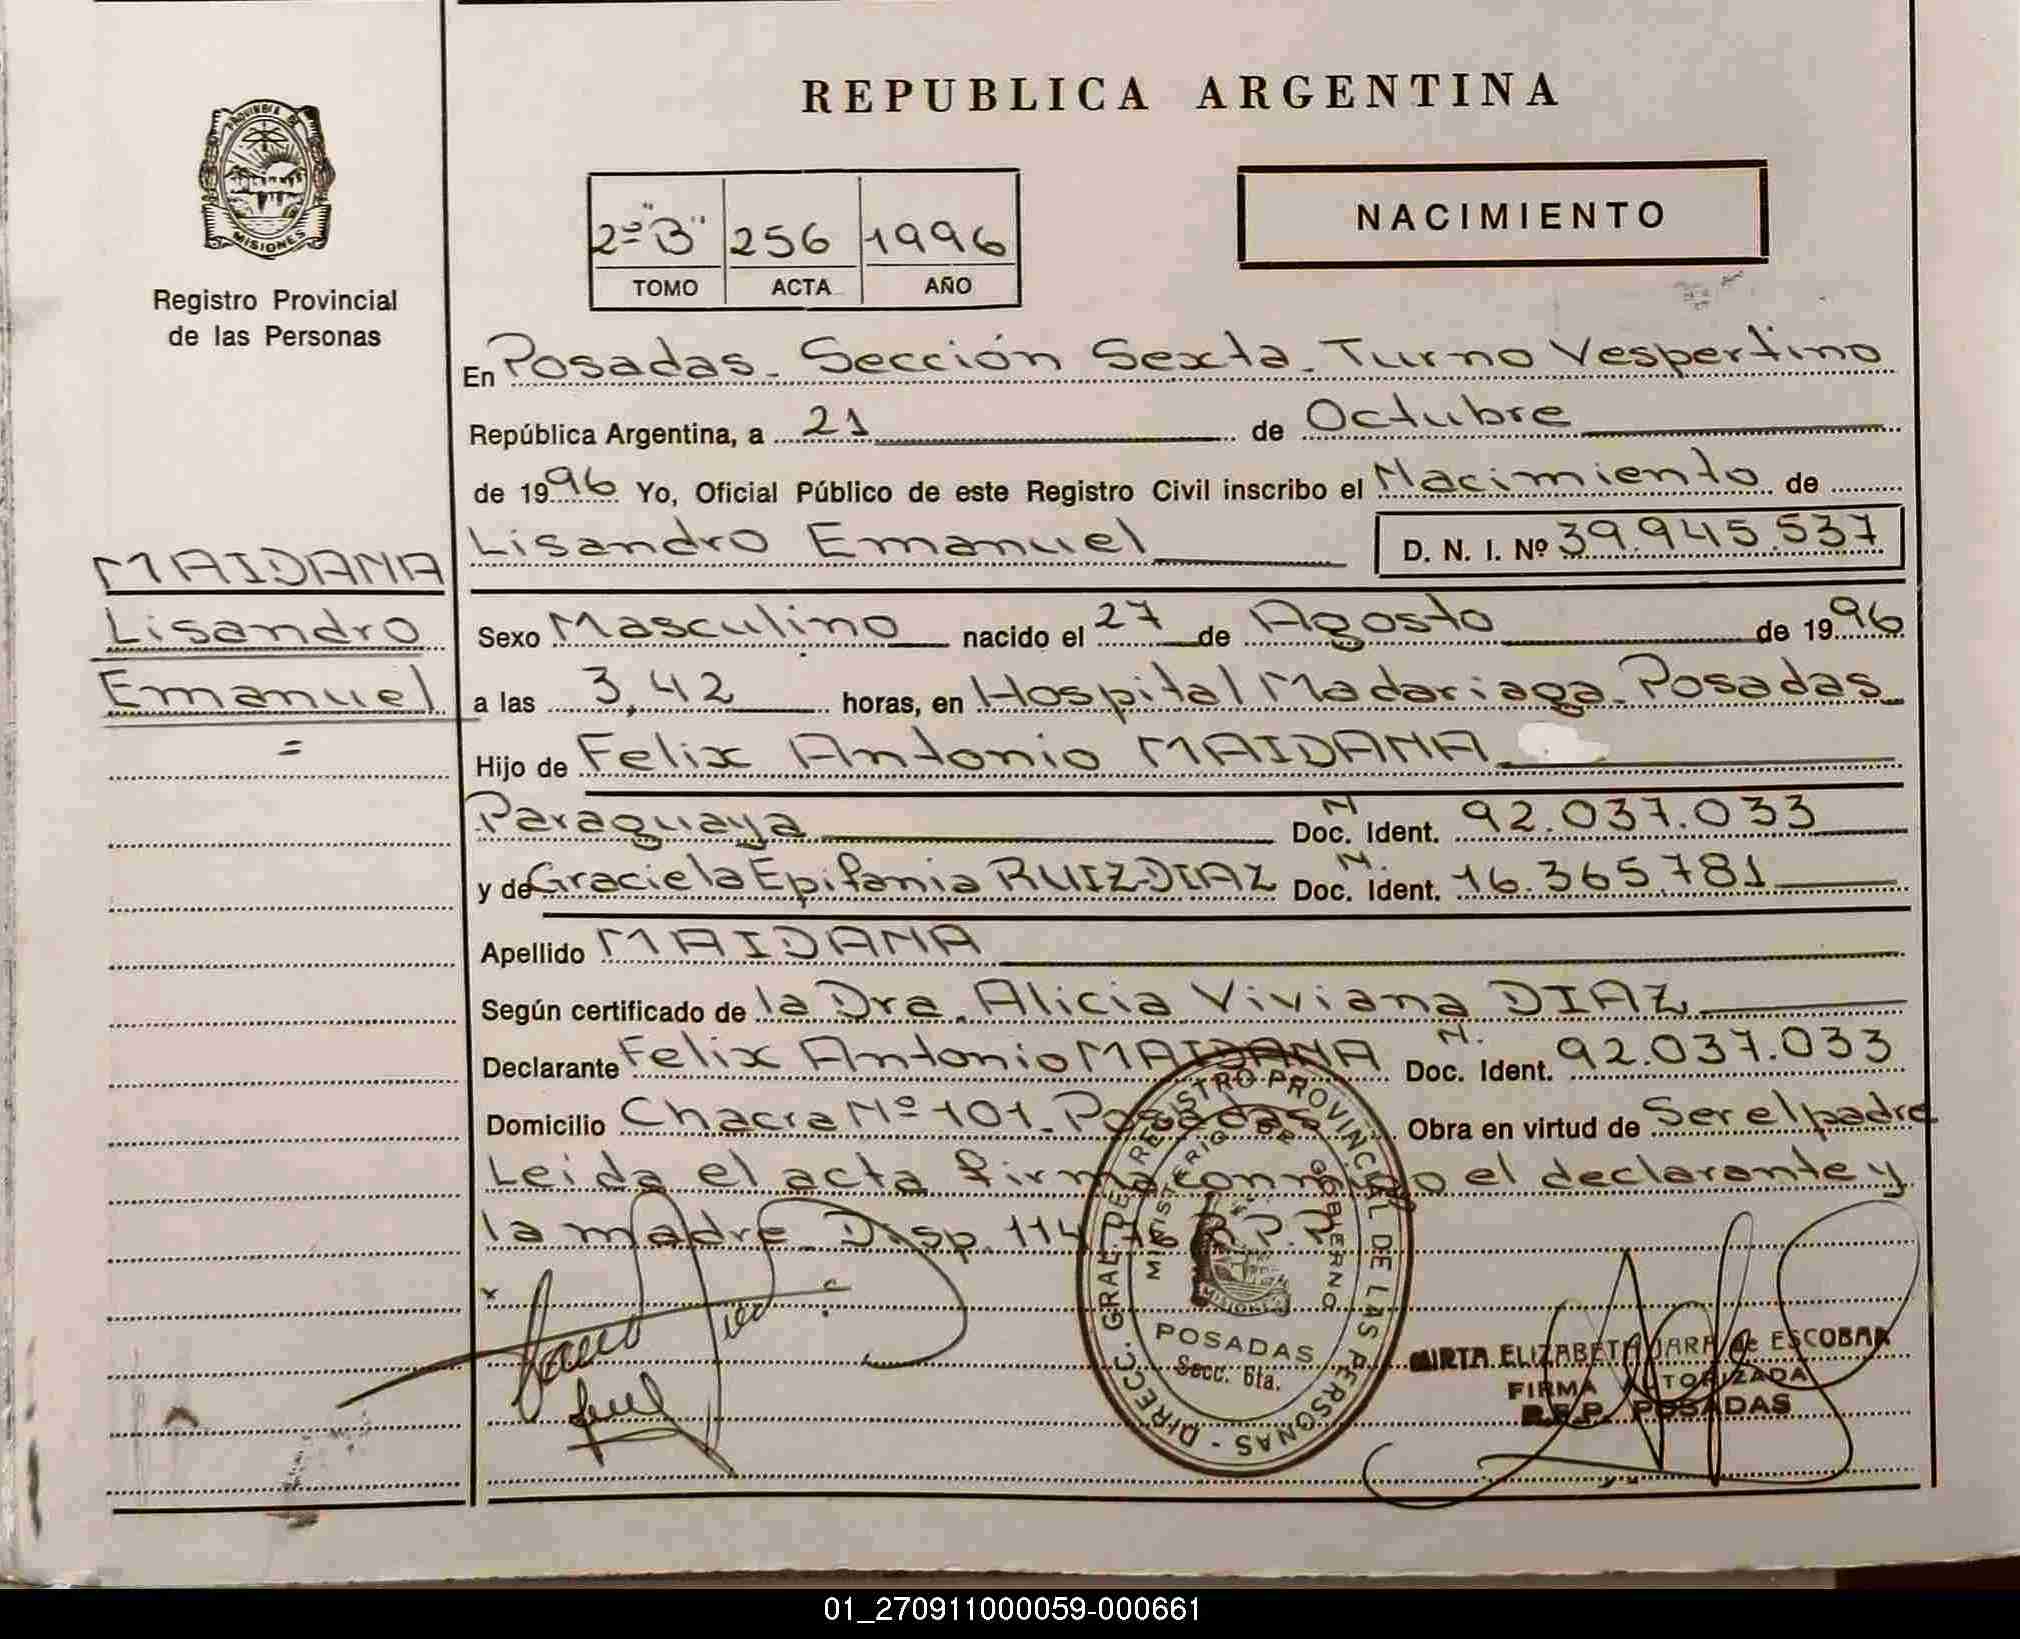 REPUBLICA ARGENTINA
PROVINCIA DE
MISIONES
Registro Provincial
de las Personas
2º "B" 256 1996
TOMO ACTA AÑO
NACIMIENTO
En Posadas. Sección Sexta. Turno Vespertino
República Argentina, a 21 de Octubre
de 1996 Yo, Oficial Público de este Registro Civil inscribo el Nacimiento de
Lisandro Emanuel D. N. I. Nº 39.945.537
MAIDANA
Lisandro
Emanuel
=
Sexo Masculino nacido el 27 de Agosto de 1996
a las 3,42 horas, en Hospital Madariaga. Posadas
Hijo de Felix Antonio MAIDANA
Paraguaya Doc. N Ident. 92.037.033
y de Graciela Epifania RUIZ DIAZ Doc. N. Ident. 16.365.781
Apellido MAIDANA
Según certificado de la Dra. Alicia Viviana DIAZ
Declarante Felix Antonio MAIDANA Doc. N. Ident. 92.037.033
Domicilio Chacra Nº 101. Posadas Obra en virtud de Ser el padre
Leida el acta firma conmigo el declarante y
la madre. Disp. 114/76 R.P.P.
DIRECC. GRAL. DE REGISTRO PROVINCIAL DE LAS PERSONAS
MINISTERIO DE GOBIERNO
MISIONES
POSADAS
Secc. 6ta.
MIRTA ELIZABETH JARA de ESCOBAR
FIRMA AUTORIZADA
R.P.P. POSADAS
01_270911000059-000661